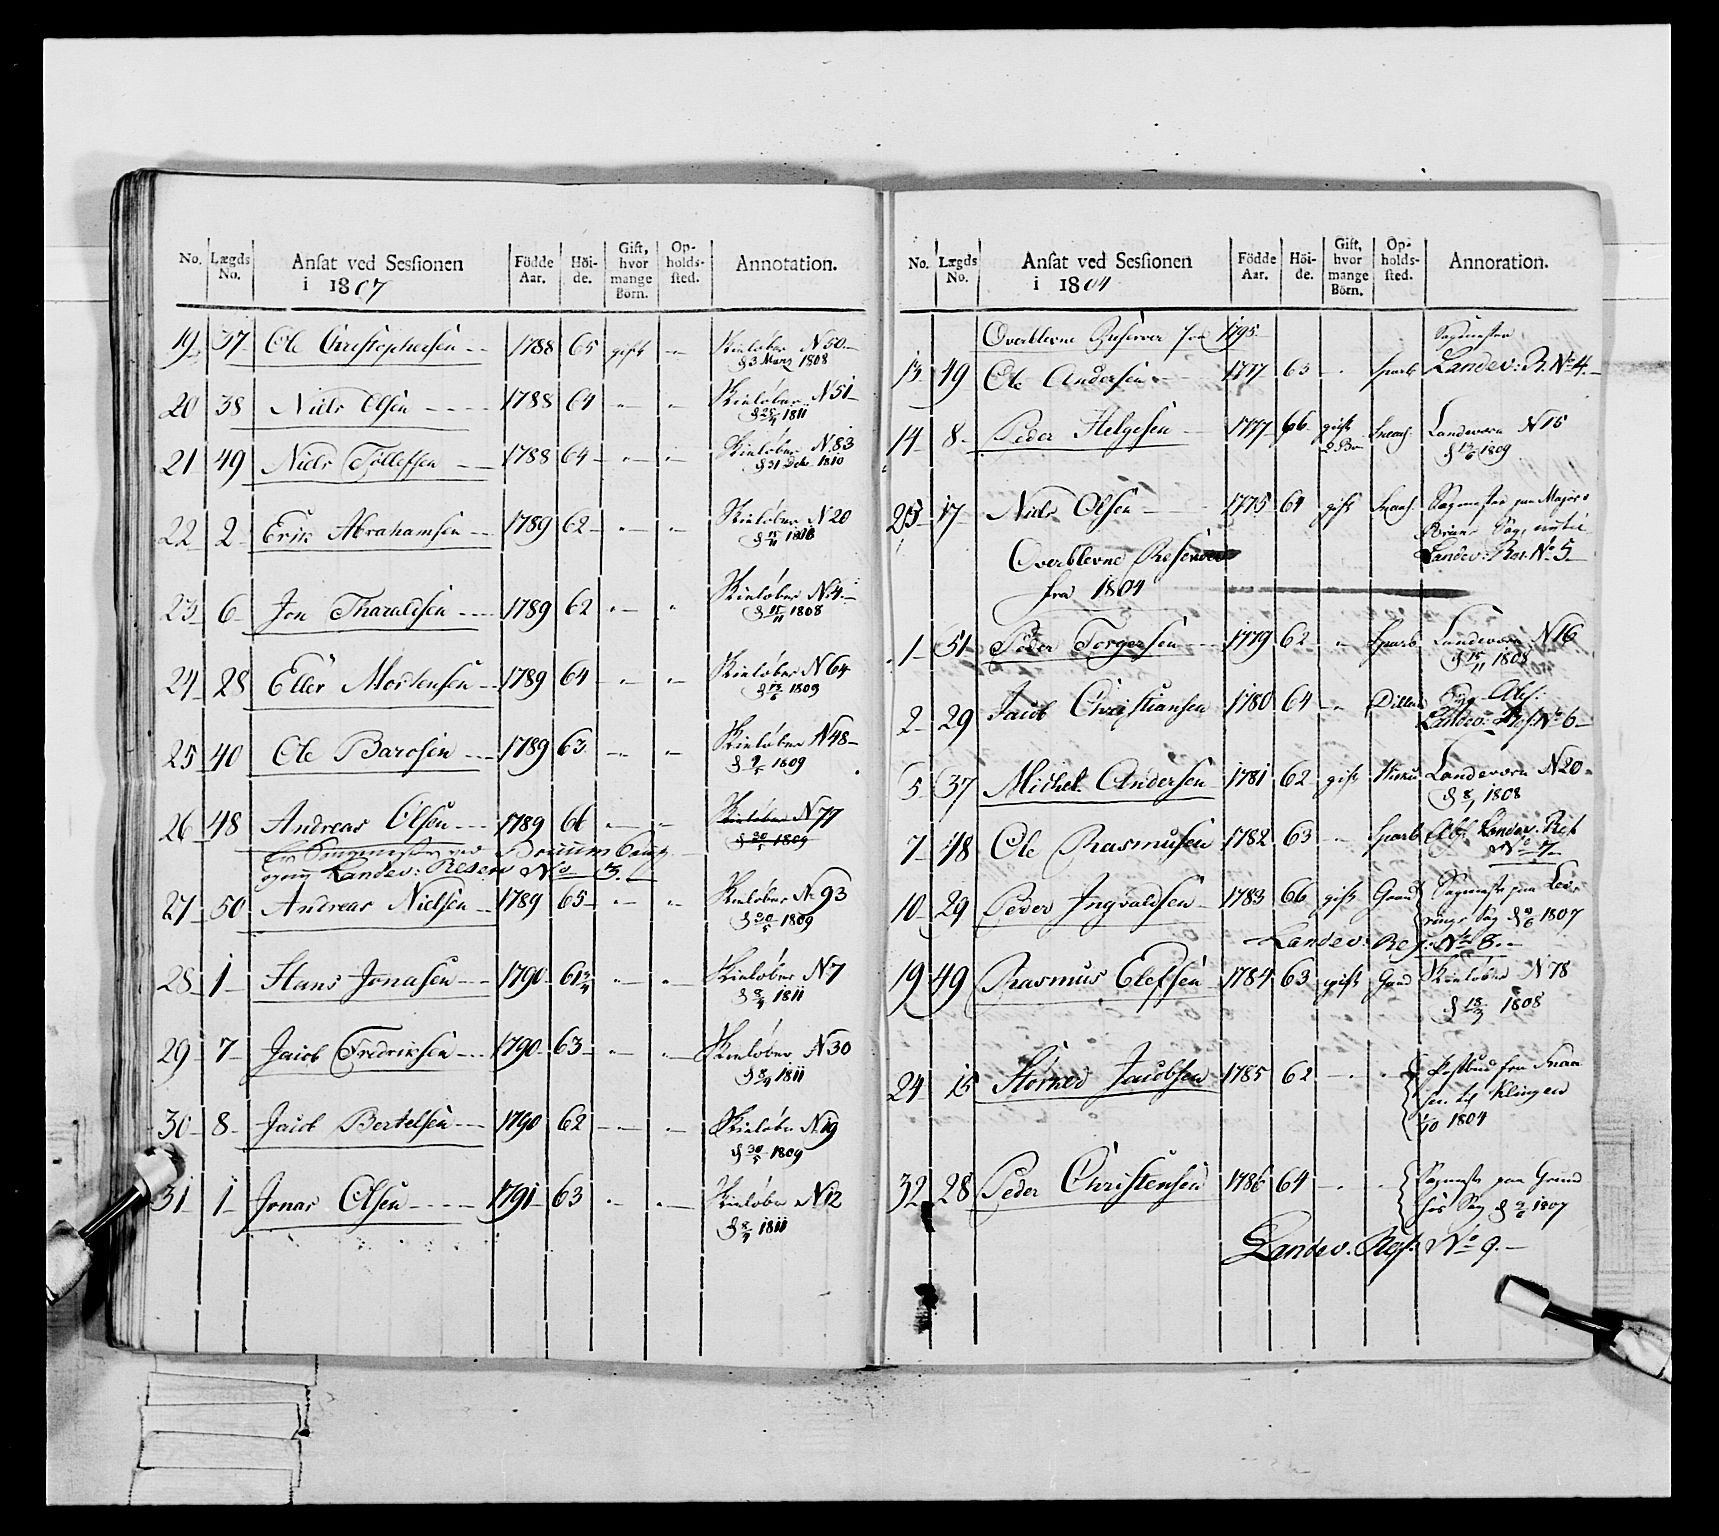 No. Lægds No. Ansat ved Sessionen i 1807 Födde Aar. Höi-de. Gift, hvor mange Börn. Op-holds-sted. Annotation.
19 37 Ole Christophersen 1788 65 gift Skieløber N 50
d 3 Marz 1808
20 38 Niels Olsen 1788 64 Skieløber N 51
1811
21 49 Niels Tollefsen 1788 64 Skieløber N. 83
d 31 Dec. 1810
22 2 Erik Abrahamsen 1789 62 Skieløber N 20
d 15/11 1808
23 6 Jon Tharaldsen 1789 62 Skieløber N. 4
d 15/11 1808
24 28 Eller Mortensen 1789 64 Skieløber N 64
1809
25 40 Ole Barosen 1789 63 Skieløber N 48
1809
26 48 Andreas Olsen 1789 66 Skieløber N 77
d 30/5 1809
Landev: Reserv No 3.
27 50 Andreas Nielsen 1789 65 Skieløber N. 93
d 30/5 1809
28 1 Hans Jonasen 1790 61 3/4 Skieløber N 7
1811
29 7 Jacob Fredriksen 1790 63 Skieløber N 30
1811
30 8 Jacob Bertelsen 1790 62 Skieløber N. 19
d 30/5 1809
31 1 Jonas Olsen 1791 63 Skieløber N 12
1811
No. Lægds No. Ansat ved Sessionen i 1804 Födde Aar. Höi-de. Gift, hvor mange Börn. Op-holds-sted. Annoration.
Overblevne Reserver fra 1795
13 49 Ole Andersen 1777 63 Sparb Landev: R. No 4.
14 8 Peder Helgesen 1777 66 gift Landeværn N 15
1809
25 17 Niels Olsen 1775 64 gift Sagmester paa Major
Landev: Res. No 5
Overblevne Reserver
fra 1804
1 51 Peder Torgersen 1779 62 Sparb Landeværn N 16
d 15/11 1808
2 29 Jacob Christiansen 1780 64
Landev: Res: No 6
5 37 Michel Andersen 1781 62 gift Landeværn N 20
1808
7 48 Ole Rasmusen 1782 63 Sparb Landev. Res
No 7
10 29 Peder Ingvaldsen 1783 66 gift Sagmester paa Lev-
rings Sag 1807
Landev: Res: No 8.
19 49 Rasmus Elefsen 1784 63 gift Skieløber N 78
1808
24 15 Jacobsen 1785 62 Postbud fra
til Klingen
1804
32 28 Peder Christensen 1786 64 Sagmester paa
Sag 1807
Landev. Res: No 9.